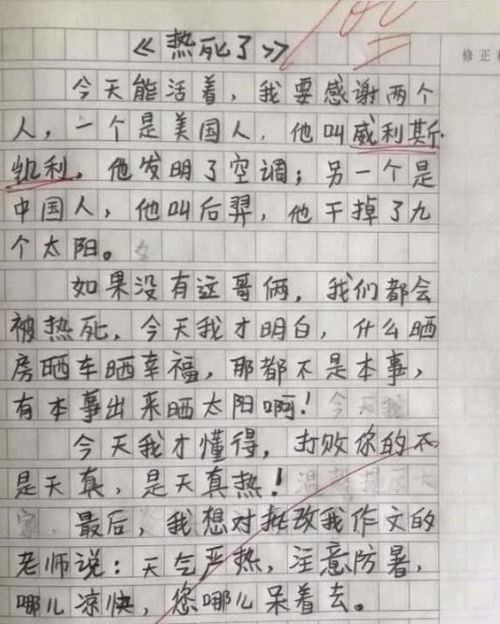 《热死了》
修正
今天能活着，我要感谢两个
人，一个是美国人，他叫威利斯·
凯利，他发明了空调；另一个是
中国人，他叫后羿，他干掉了九
个太阳。
如果没有这哥俩，我们都会
被热死，今天我才明白，什么晒
房晒车晒幸福，那都不是本事，
有本事出来晒太阳啊！
今天我才懂得，打败你的不
是天真，是天真热！
最后，我想对批改我作文的
老师说：天气严热，注意防暑，
哪儿凉快，您哪儿呆着去。